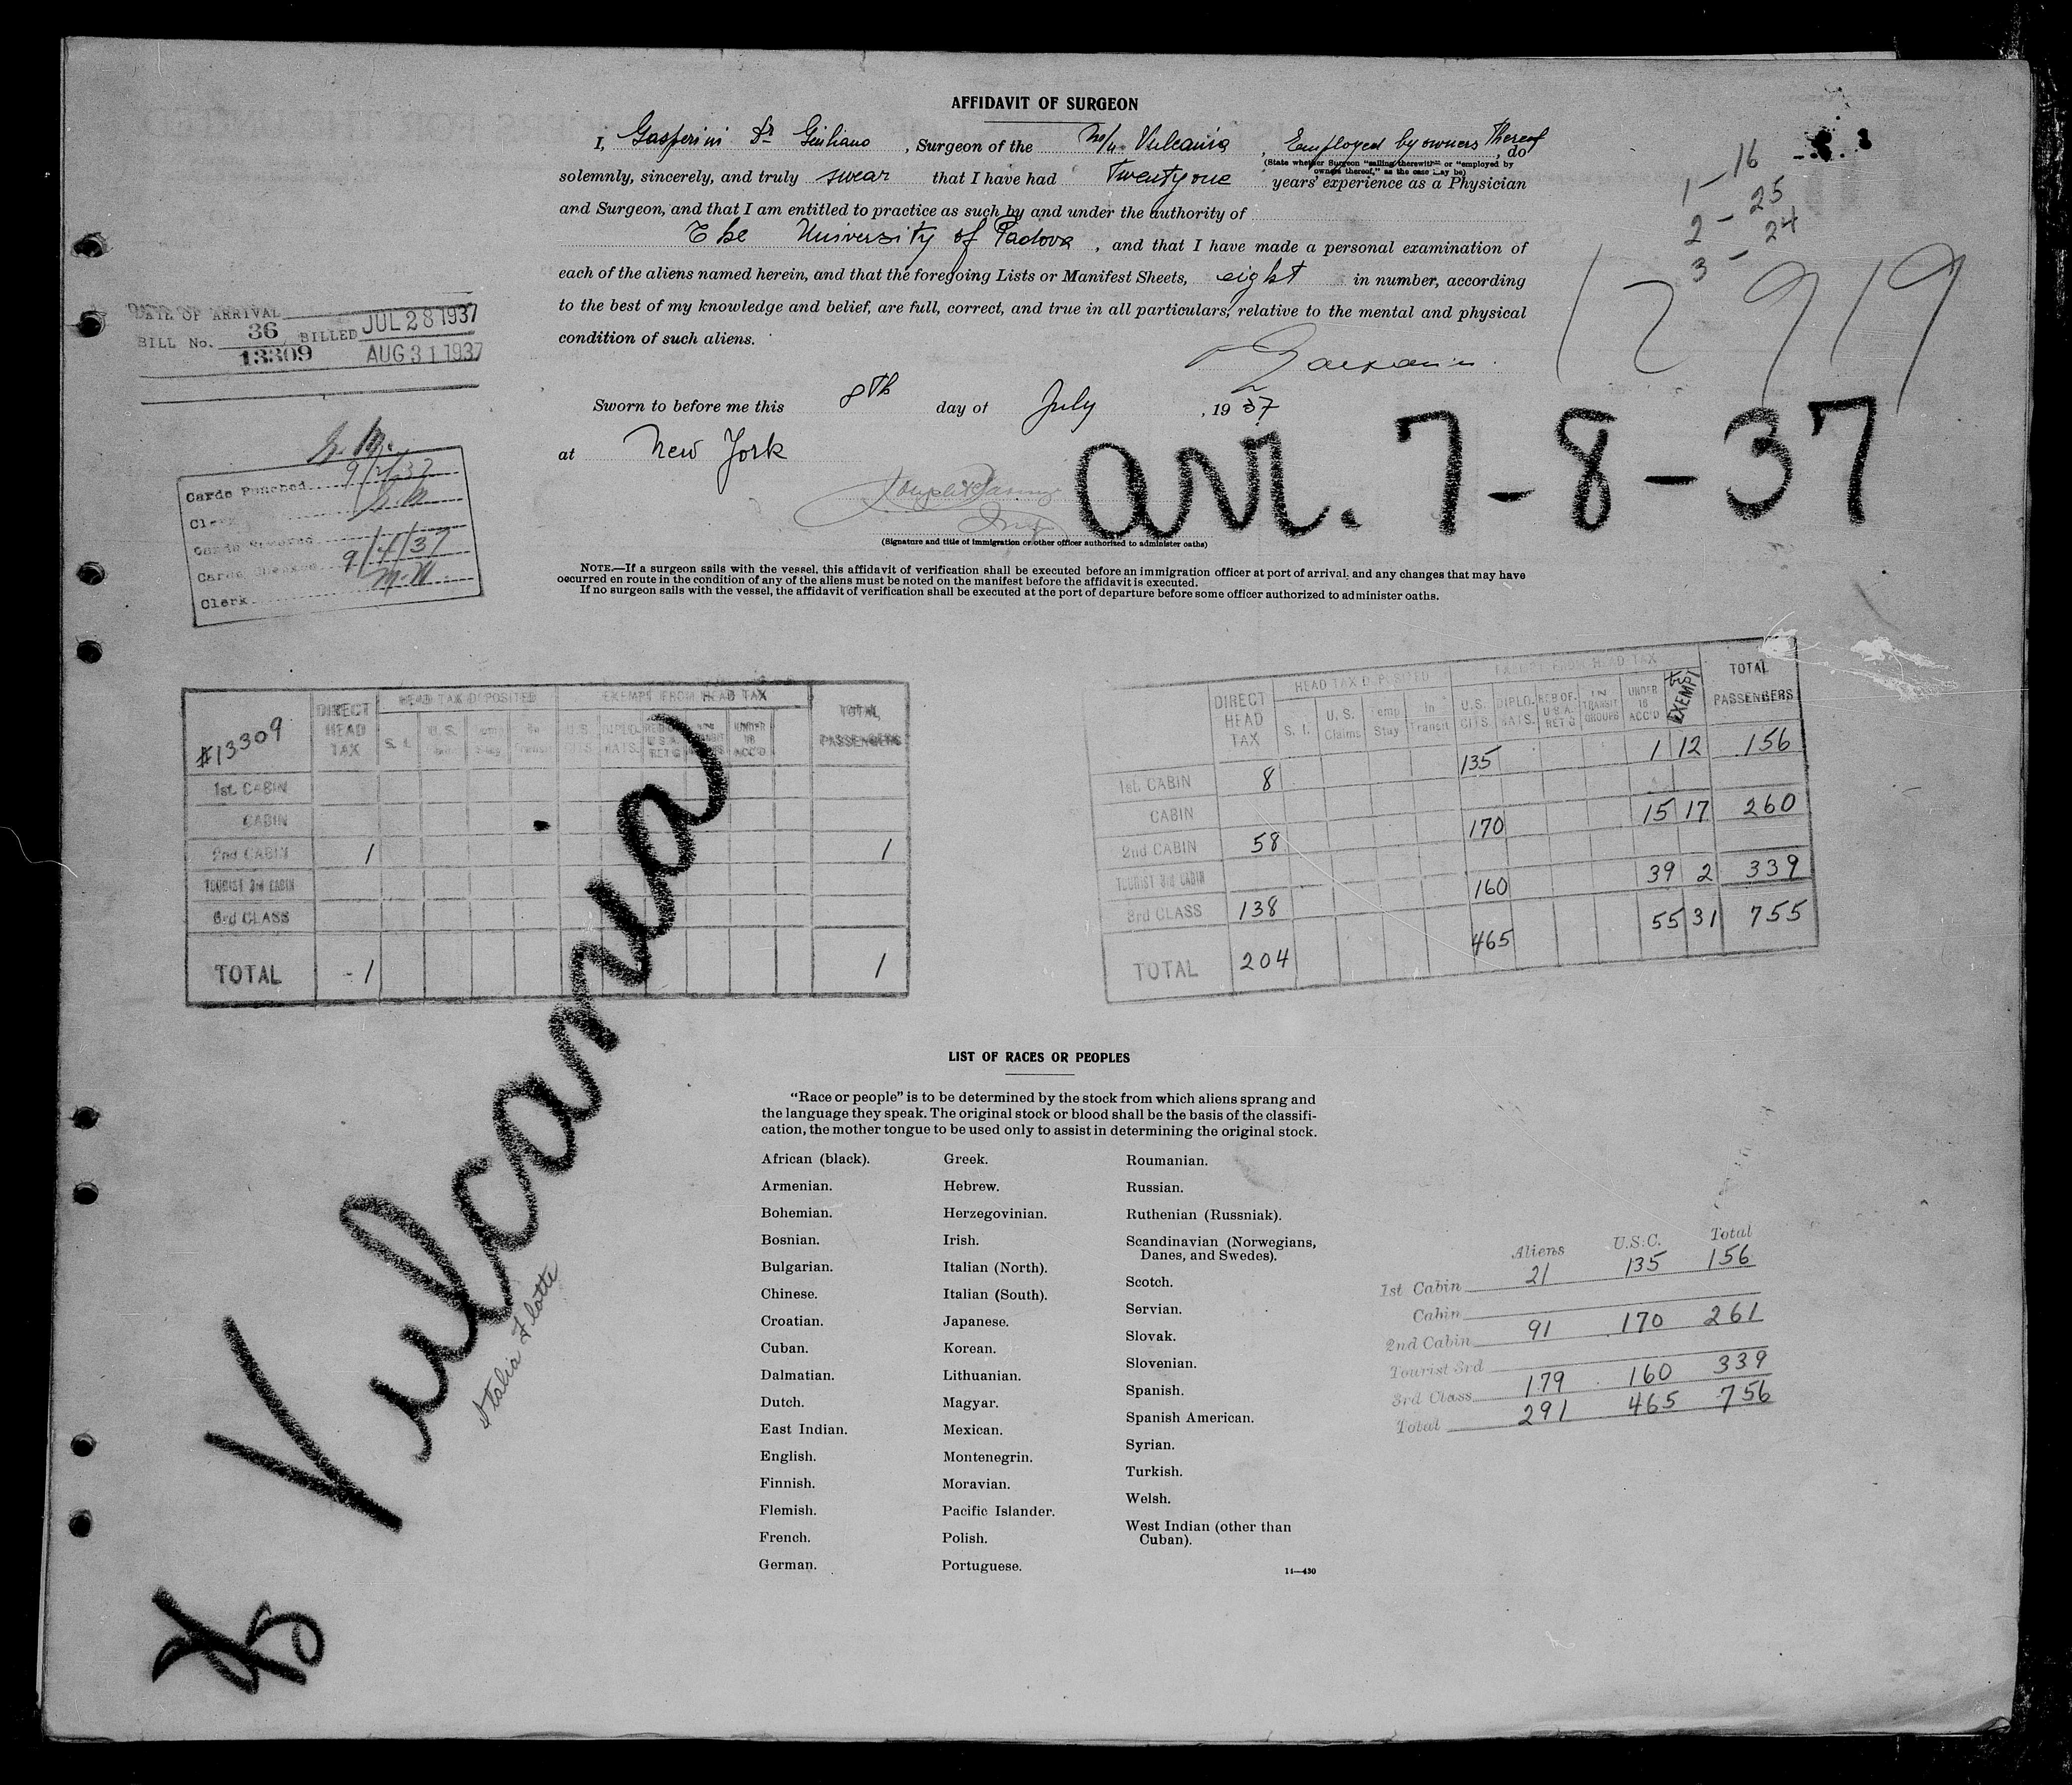 AFFIDAVIT OF SURGEON
I, Gasperini Dr Giuliano, Surgeon of the M/n Vulcania, Employed by owners Thereof, do
(State whether Surgeon "sailing therewith" or "employed by
owners thereof," as the case may be)
solemnly, sincerely, and truly swear that I have had Twentyone years' experience as a Physician
and Surgeon, and that I am entitled to practice as such by and under the authority of
The University of Padova, and that I have made a personal examination of
each of the aliens named herein, and that the foregoing Lists or Manifest Sheets, eight in number, according
to the best of my knowledge and belief, are full, correct, and true in all particulars, relative to the mental and physical
condition of such aliens.
Gasperini
Sworn to before me this 8th day of July, 1937
at New York
(Signature and title of immigration or other officer authorized to administer oaths)
NOTE.—If a surgeon sails with the vessel, this affidavit of verification shall be executed before an immigration officer at port of arrival, and any changes that may have
occurred en route in the condition of any of the aliens must be noted on the manifest before the affidavit is executed.
If no surgeon sails with the vessel, the affidavit of verification shall be executed at the port of departure before some officer authorized to administer oaths.
1 - 16
2 - 25
3 - 24
arr. 7-8-37
DATE OF ARRIVAL
BILL No. 36 BILLED JUL 28 1937
13309 AUG 31 1937
Cards Punched 9/2/37
Clerk
Cards
Cards Checked 9/4/37
Clerk M.W.
#13309 DIRECT HEAD TAX HEAD TAX DEPOSITED EXEMPT FROM HEAD TAX TOTAL PASSENGERS
S. I. U.S. Temp Stay In Transit U.S. CITS. DIPLO. MATS. U.S.A. RET'G UNDER 16 ACC'D
1st. CABIN
CABIN
2nd CABIN 1 1
TOURIST 3rd CABIN
3rd CLASS
TOTAL 1 1
DIRECT HEAD TAX HEAD TAX DEPOSITED EXEMPT FROM HEAD TAX TOTAL PASSENGERS
S. I. U.S. Claims Temp Stay In Transit U.S. CITS. DIPLO. MATS. RES OF. U.S.A. RET'G IN TRANSIT GROUPS UNDER 16 ACC'D EXEMPT
1st. CABIN 8 135 1 12 156
CABIN
2nd CABIN 58 170 15 17 260
TOURIST 3rd CABIN
3rd CLASS 138 160 39 2 339
TOTAL 204 465 55 31 755
Vulcania
Italia Flotte
LIST OF RACES OR PEOPLES
"Race or people" is to be determined by the stock from which aliens sprang and
the language they speak. The original stock or blood shall be the basis of the classifi-
cation, the mother tongue to be used only to assist in determining the original stock.
African (black).
Armenian.
Bohemian.
Bosnian.
Bulgarian.
Chinese.
Croatian.
Cuban.
Dalmatian.
Dutch.
East Indian.
English.
Finnish.
Flemish.
French.
German.
Greek.
Hebrew.
Herzegovinian.
Irish.
Italian (North).
Italian (South).
Japanese.
Korean.
Lithuanian.
Magyar.
Mexican.
Montenegrin.
Moravian.
Pacific Islander.
Polish.
Portuguese.
Roumanian.
Russian.
Ruthenian (Russniak).
Scandinavian (Norwegians,
Danes, and Swedes).
Scotch.
Servian.
Slovak.
Slovenian.
Spanish.
Spanish American.
Syrian.
Turkish.
Welsh.
West Indian (other than
Cuban).
14—430
Aliens U.S.C. Total
1st Cabin 21 135 156
Cabin
2nd Cabin 91 170 261
Tourist 3rd
3rd Class 179 160 339
Total 291 465 756